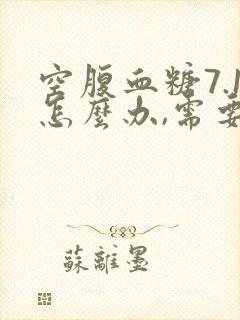 空腹血糖7.1
怎麼办,需要
蘇離墨